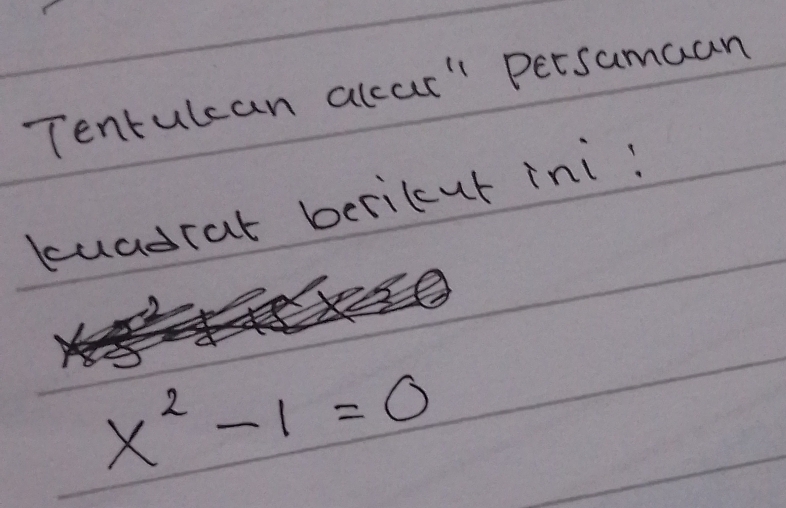 Tentukan akar" persamaan
kuadrat berikut ini :
x² - 1 = 0